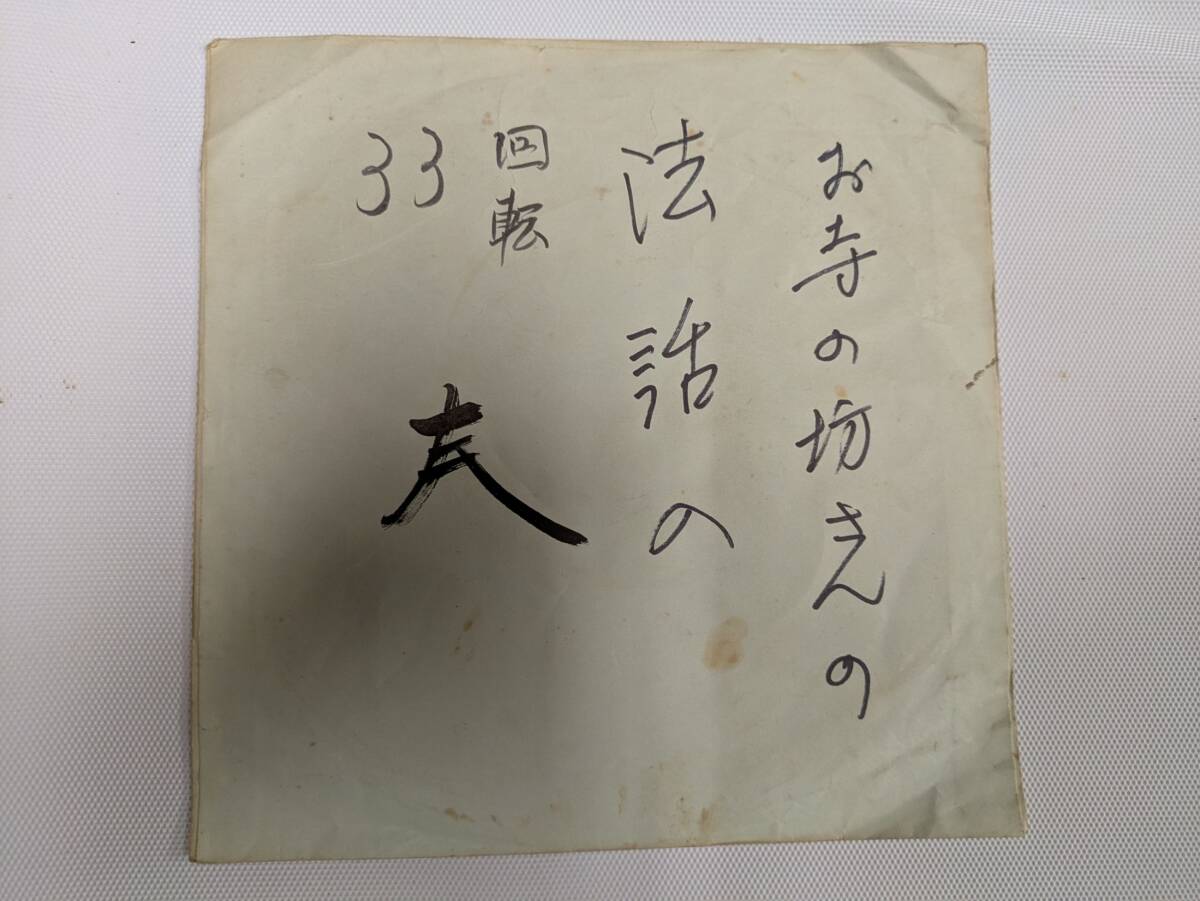 お寺の坊さんの
法話の
回転
33